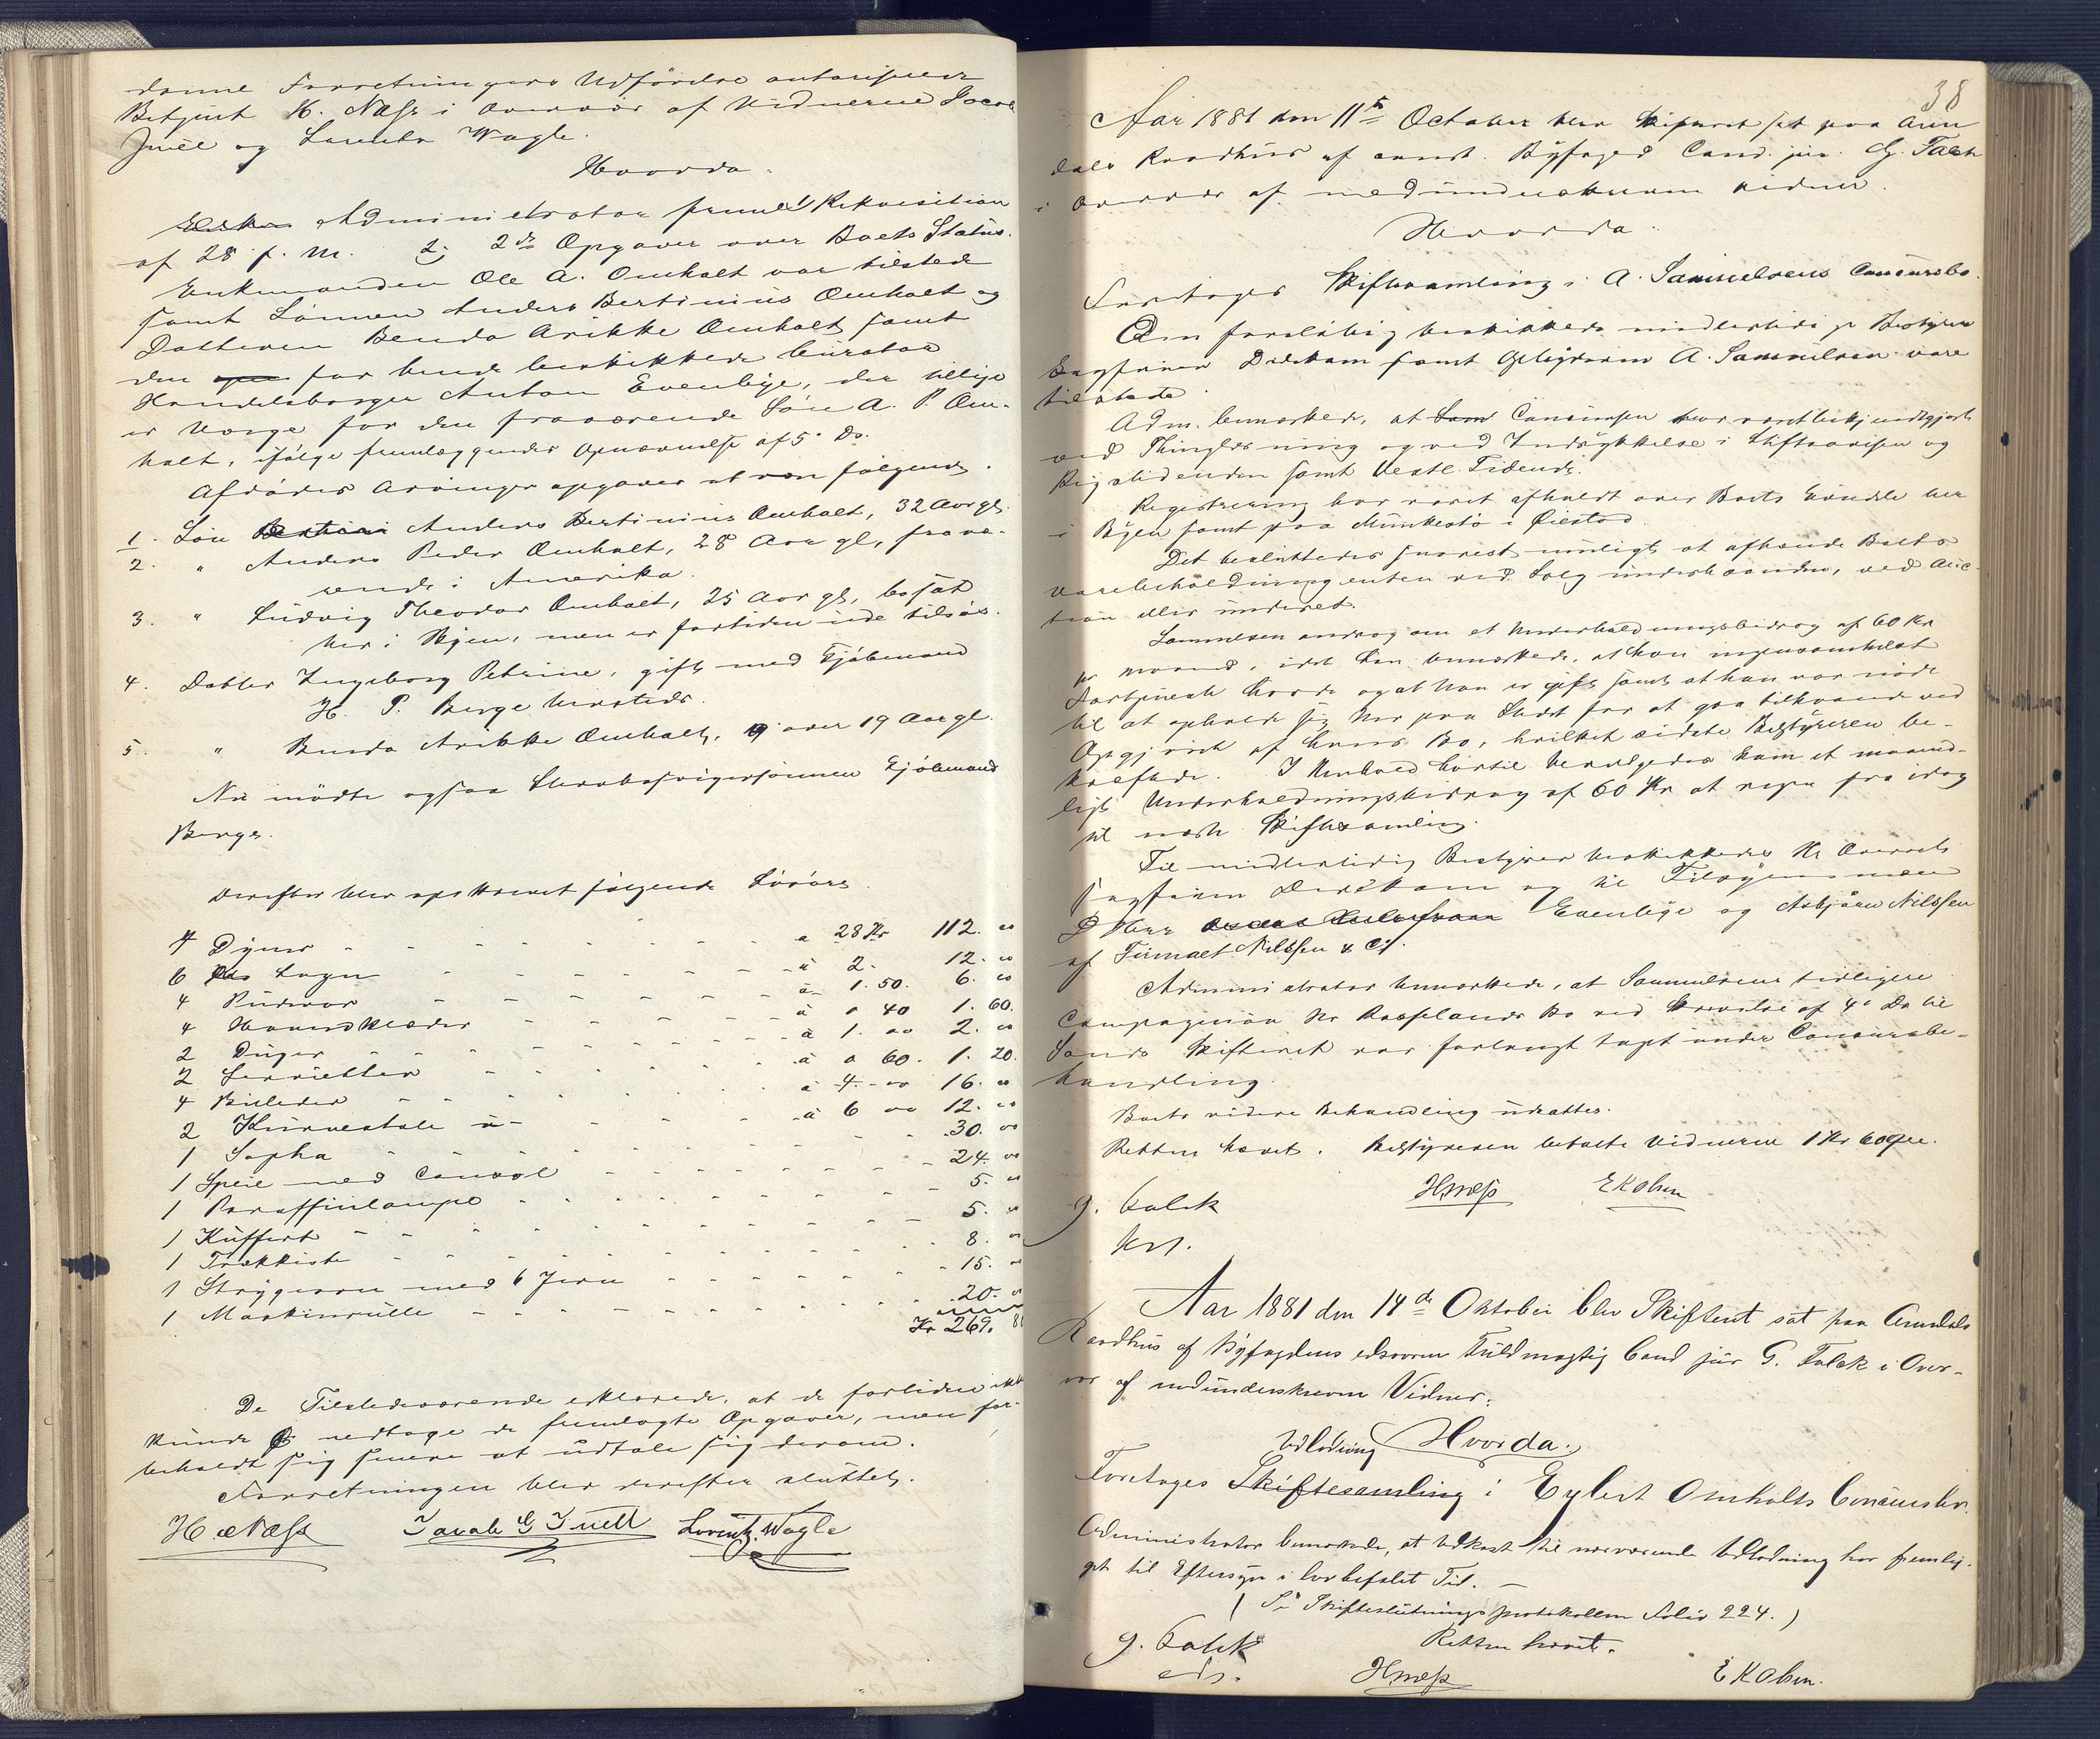 denne Forretningers Udførelse autoriserede
Betjent H. Næss i Overvær af Vidnerne Jacob
Juell og Laurentz Wagle.
Hvorda.
Administrator freml. 1 Rekvisition
af 28 f. M. 2, 2de Opgaver over Boets Status.
Enkemanden Ole A. Omholt var tilstede
samt Sønnen Anders Bertinius Omholt og
Datteren Benda Arikke Omholt samt
den for hende beskikkede Curator
Handelsborger Anton Evenbye, der tillige
er Værge for den fraværende Søn A. P. Om-
holt, ifølge fremlæggendes Opnævnelse af 5 Ds.
Afdødes Arvinger opgaves at være følgende.
1. Søn Anders Bertinius Omholt, 32 Aar gl.
2. " Anders Peder Omholt, 28 Aar gl, fravæ-
rende i Amerika.
3. " Ludvig Theodor Omholt, 25 Aar gl, bosat
her i Byen, men er fortiden ude tilsøs.
4. Datter Ingeborg Petrine, gift med Kjøbmand
H. P. Berge hersteds.
5. " Benda Arikke Omholt, over 19 Aar gl.
Nu mødte ogsaa Sterbosvigersønnen Kjøbmand
Berge.
Derefter blev opskrevet følgende Løsøre
4 Dyner - - - a 28 Kr 112. 00
6 Lagen - - - à 2. 12. 00
4 Pudevar - - - à 1.50. 6. 00
4 Haandklæder - - - à 0 40 1. 60.
2 Duger - - - à 1. 00 2. 00
2 Servietter - - - à 0 60. 1. 20.
4 Billeder - - - à 4. 00 16. 00
2 Kurvestole - - - à 6 00 12. 00
1 Sopha - - - 30. 00
1 Speil med Consol - - - 24. 00
1 Paraffinlampe - - - 5. 00
1 Kuffert - - - 5. 00
1 Trækkiste - - - 8. 00
1 Strygeovn med 6 Jern - - - 15. 00
1 Maskinrulle - - - 20. 00
Kr 269. 80
De Tilstedeværende erklærede, at de fortiden ikke
kunde vedtage de fremlagte Opgaver, men for-
beholdt sig senere at udtale sig derom.
Forretningen blev derefter sluttet.
H. Næss Jacob G Juell Lorentz Wagle
38
Aar 1881 den 11te October blev Skifteret sat paa Aren
dals Raadhus af const. Byfoged Cand. jur. G. Falck
i Overvær af medunderskrevne Vidner.
Hvorda.
Foretoges Skiftesamling i A. Samuelsens Concursbo.
Den foreløbig beskikkede midlertidige Bestyrer
Sagfører Dedekam samt Opbyderen A. Samuelsen vare
tilstede.
Adm. bemærkede, at Concursen har været bekjendtgjort
ved Thinglæsning og ved Indrykkelse i Stiftsavisen og
Rigstidenden samt Vestl. Tidende.
Registrering har været afholdt over Boets Eiendele her
i Byen samt paa Munkestø i Øiestad.
Det besluttedes snarest muligt at afhænde Boets
Varebeholdning enten ved Salg underhaanden, ved Auc-
tion eller underet.
Samuelsen androg om et Underholdningsbidrag af 60 Kr
pr maaned, idet han bemærkede, at han
og at han er gift samt at han var nødt
til at opholde sig her paa Stedet for at gaa tilhaande ved
Opgjøret af hans Bo, hvilket sidste Bestyreren be-
kræftede. I Henhold hertil bevilgedes ham et maaned-
ligt Underholdningsbidrag af 60 Kr at regne fra idag
til næste Skiftesamling.
Til midlertidig Bestyrer beskikkedes Hr Overrets
sagfører Dedekam og til Tilsynsmænd
D'Hrr Evenbye og Asbjørn Nilssen
af Firmaet Nilssen & Co.
Administrator bemærkede, at Samuelsens tidligere
Compagnon Hr Rosselands Bo ved Skrivelse af 4de Ds til
Sands Skifteret var forlangt tagt under Concursbe-
handling.
Boets videre Behandling udsattes.
Retten hævet. Bestyreren betalte Vidnerne 1 Kr 60 Øre.
G. Falck HNæss EKOlsen
kst.
Aar 1881 den 14de Oktober blev Skifteret sat paa Arendals
Raadhus af Byfogdens edsvorne Fuldmægtig Cand jur G. Falck i Over-
vær af medunderskrevne Vidner.
Hvorda.
Udlodning
Foretoges Skiftesamling i Eylert Omholts Concursbo.
Administrator bemærkede, at Udkast til nærværende Udlodning har fremlig-
get til Eftersyn i lovbefalet Tid. -
(Se Skifteslutningsprotokollen Folio 224.)
Retten hævet.
G. Falck HNæss EKOlsen.
eds.